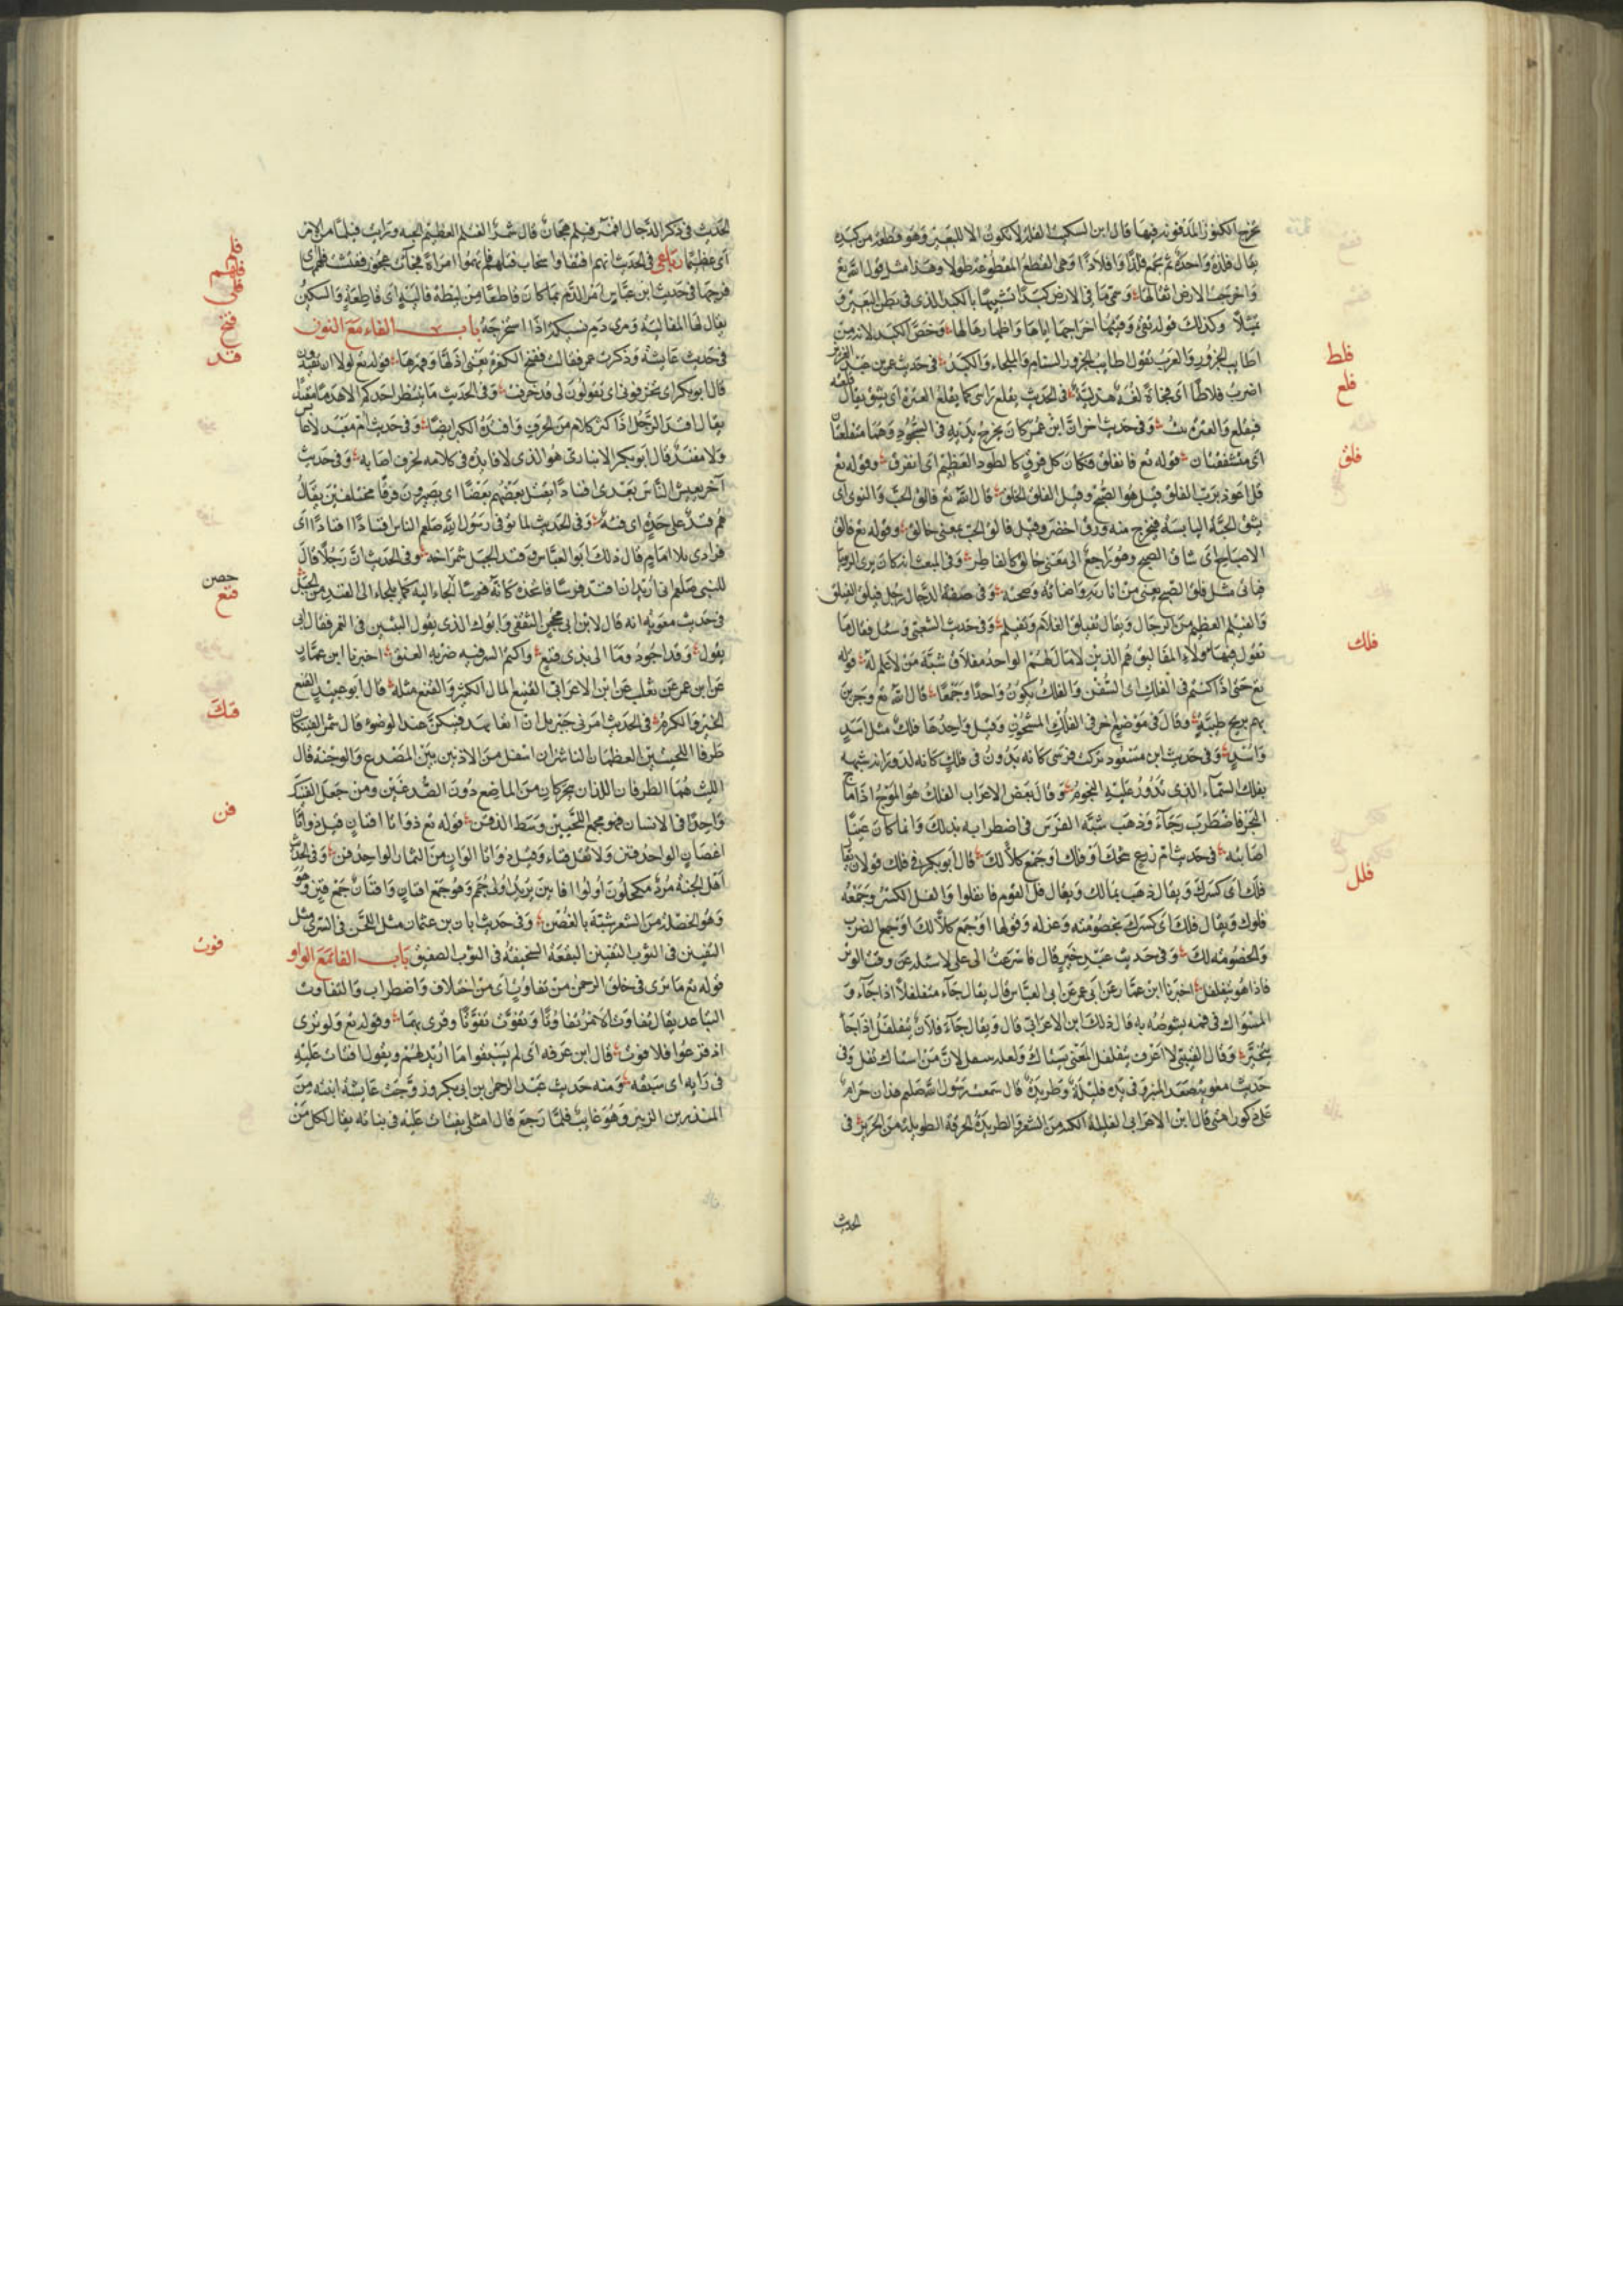 تخرج الكنوز المدفونة فيها قال ابن السكيت الفلذ لا تكون الا للبعير وهو قطعة من كبده
يقال فلذة واحدة ثم تجمع فلذا وافلاذا وهي القطع المقطوعة طولا وهذا مثل قول الله تع
واخرجت الارض اثقالها وسمى ما في الارض كبدا تشبيها بالكبد الذي في بطن البعير
وكذلك قوله وقيئها اخراجها اياها واظهارها لها وخص الكبد لانه من
اطايب الجزور والعرب تقول اطايب الجزور السنام والملحاء والكبد في حديث عمر بن عبد العزيز
فلط
اضرب فلاطا اى فجاة لغة هذلية في الحديث يفلع راسى كما يفلع العترة اى يشق يقال فلعته
فلع
وفي حديث اخر ان ابن عمر كان يخرج يديه في السجود وهما متفلعتان
اى متشققتان قوله تع فانفلق فكان كل فرق كالطود العظيم اى انفرق وقوله تع
فلق
قل اعوذ برب الفلق قيل هو الصبح وقيل الفلق الخلق قال الله تع فالق الحب والنوى اى
يشق الحبة اليابسة فيخرج منه ورق اخضر وقيل فالق الحب بمعنى خالق وقوله تع فالق
الاصباح اى شاق الصبح وهو راجع الى معنى خالق كالفاطر وفي المبعث انه كان يرى الرويا
فياتى مثل فلق الصبح يعنى من انارته واضاته وصحته وفي صفة الدجال رجل فيلق الفيلق
والفيلم العظيم من الرجال ويقال تفيلق الغلام وتفيلم وفي حديث الشعبى وسئل فقال ما
تقول فيها هولاء المفاليق هم الذين لا مال لهم الواحد مفلاق شبه من لا علم له قوله
فلك
تع حتى اذا كنتم في الفلك اى السفن والفلك يكون واحدا وجمعا قال الله تع وجرين
بهم بريح طيبة وقال في موضع اخر في الفلك المشحون وقيل واحدها فلك مثل اسد
واسد وفي حديث ابن مسعود تركت فرسى كانه يدور في فلك كانه لدورانه شبهه
بفلك السماء الذى تدور عليه النجوم وقال بعض الاعراب الفلك هو الموج اذا ماج
البحر فاضطرب وجاء وذهب شبه الفرس في اضطرابه بذلك وانما كان عينا
اصابته في حديث ام زرع شجك او فلك او جمع كلا لك قال ابو بكر في فلك قولان يقال
فلل
فلك اى كسرك ويقال ذهب بمالك ويقال فل القوم فانفلوا والفل الكسر وجمعه
فلول ويقال فلك اى كسرك بخصومته وعذله وقولها او جمع كلا لك او جمع الضرب
والخصومة لك وفي حديث عبد خير قال فاسرعت الى على لاسئله عن وقت الوتر
فاذا هو يتفلفل اخبرنا ابن عمار عن ابى عمر عن ابى العباس قال يقال جاء متفلفلا اذا جاء و
المسواك في فمه يشوصه به قال ذلك ابن الاعرابى قال ويقال جاء فلان يتفلفل اذا جا
يتبختر وقال القتيبى لا اعرف يتفلفل المعنى يستاك ولعله يتفل لان من استاك تفل وفى
حديث معوية صعد المنبر وفي يده فليلة وطريدة قال سمعت رسول الله صلعم هذان حرام
على ذكور امتى قال ابن الاعرابى الفليلة الكبة من الشعر والطريدة الخرقة الطويلة من الحرير في
الحديث
الحديث في ذكر الدجال اقمر فيلم هجان قال شمر الفيلم العظيم الجبة ورايت فيلما من الامر
فلم
اى عظيما رباعى في الحديث انهم افتقدوا سخاب فتاتهم فاتهموا امراة فجات عجوز ففتشت فلهمها اى
فلهم
فرجها في حديث ابن عباس امر الدم بما كان قاطعا من ليطة فالية اى قاطعة والسكين
فلى
يقال لها الفالية ومرى دم نسيكة اذا استخرجه باب الفاء مع النون
فنخ
في حديث عايشة وذكرت عمر فقالت ففنخ الكفرة يعنى اذلها وقهرها قوله تع لولا ان تفندون
فند
قال ابو بكر اى تخرفونى اى تقولون لى قد خرفت وفي الحديث ما ينتظر احدكم الا هرما مفندا
يقال افند الرجل اذا كثر كلامه من الخرف وافنده الكبر ايضا وفي حديث ام معبد لا عابس
ولا مفند قال ابو بكر الانبارى هو الذى لا فايدة في كلامه لخرف اصابه وفي حديث
آخر يعيش الناس بعدى افنادا يقتل بعضهم بعضا اى يصيرون فرقا مختلفين يقال
هم فند على حدة اى فئة وفي الحديث لما توفى رسول الله صلعم الناس افنادا افنادا اى
فرادى بلا امام قال ذلك ابو العباس وفند الجبل شمراخه وفي الحديث ان رجلا قال
للنبى صلعم انى اريد ان افند فرسا اتخذه كانه حصنا الجاء اليه كما يلجاء الى الفند من الجبل
حصن
في حديث معوية انه قال لابن ابى محجن الثقفى ابوك الذى يقول البيتين في الخمر فقال ابى
فنع
يقول وقد اجود وما الى بذى فنع واكتم السر فيه ضربة العنق اخبرنا ابن عمار
عن ابن عمر عن ثعلب عن ابن الاعرابى الفنع المال الكثير والفنع مثله قال ابو عبيد الفنع
الخير والكرم في الحديث امرنى جبريل ان اتعاهد فنيكى عند الوضوء قال شمر الفنيكان
فنك
طرفا اللحيين العظمان الناشزان اسفل من الاذنين بين الصدغ والوجنة قال
الليث هما الطرفان اللذان يتحركان من الماضغ دون الصدغين ومن جعل الفنيك
واحدا في الانسان فهو مجمع اللحيين وسط الذقن قوله تع ذواتا افنان قيل ذواتا
فن
اغصان الواحد فنن ولا تقل فناء وقيل ذواتا الوان من الثمار الواحد فن وفي الحديث
اهل الجنة مرد مكحلون اولوا افانين يريد اولوا جمم وهو جمع افنان وافنان جمع فنن وهو
وهو الخصلة من الشعر شبه بالغصن وفي حديث ابان بن عثمان مثل اللحن في السرى مثل
التفنين في الثوب التفنين البقعة السخيفة في الثوب الصفيق باب الفا مع الواو
فوت
قوله تع ما ترى في خلق الرحمن من تفاوت اى من اختلاف واضطراب والتفاوت
التباعد يقال تفاوت الامر تفاوتا وتفوت تفوتا وقرى بهما وقوله تع ولو ترى
اذ فزعوا فلا فوت قال ابن عرفه اى لم يسبقوا ما اريد بهم ويقول افتات عليه
في رايه اى سبقه ومنه حديث عبد الرحمن بن ابى بكر وزوجت عايشة ابنته من
المنذر بن الزبير وهو غايب فلما رجع قال امثلى يفتات عليه في بناته يقال لكل من